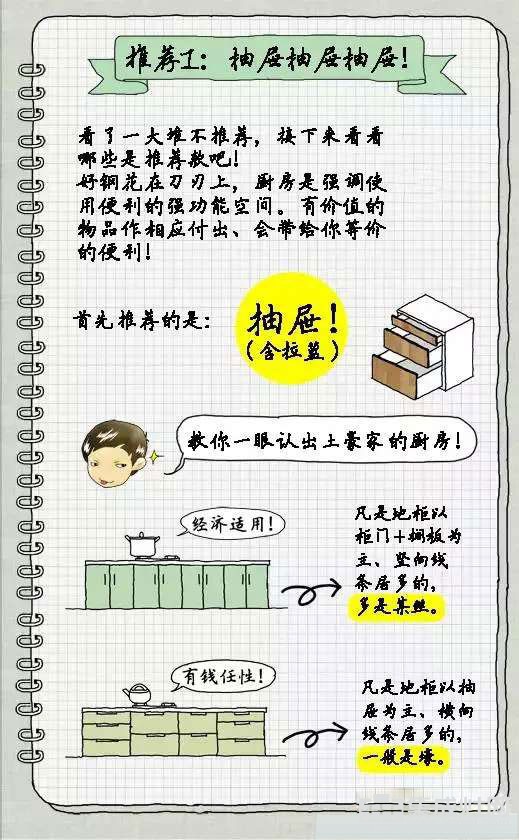 推荐1：抽屉抽屉抽屉！
看了一大堆不推荐，接下来看看
哪些是推荐款吧！
好钢花在刀刃上，厨房是强调使
用便利的强功能空间。有价值的
物品作相应付出、会带给你等价
的便利！
首先推荐的是：
抽屉！
（含拉篮）
教你一眼认出土豪家的厨房！
经济适用！
凡是地柜以
柜门+搁板为
主、竖向线
条居多的，
多是某丝。
有钱任性！
凡是地柜以抽
屉为主、横向
线条居多的，
一般是壕。